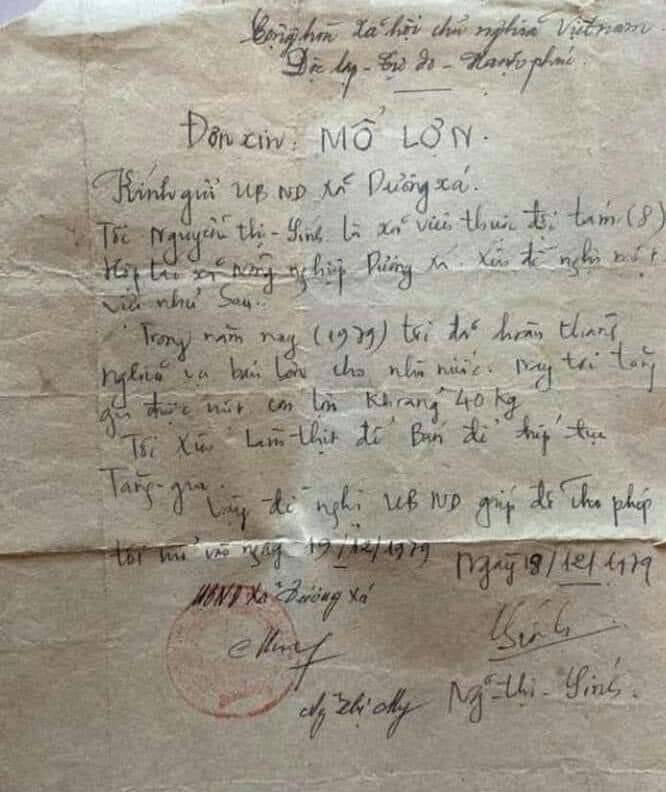 Cộng hòa xã hội chủ nghĩa Việt nam
Độc lập - Tự do - Hạnh phúc.
Đơn xin: MỔ LỢN.
Kính gửi UBND xã Dương xá.
Tôi Nguyễn thị - Sinh là xã viên thuộc đội tám (8)
Hợp tác xã nông nghiệp Dương xá. Xin đề nghị một
việc như sau.
Trong năm nay (1979) tôi đã hoàn thành
nghĩa vụ bán lợn cho nhà nước. nay tôi tăng
gia được một con lợn khoảng 40 kg
Tôi xin làm thịt để Bán để tiếp tục
Tăng - gia.
Vậy đề nghị UBND giúp đỡ cho phép
tôi mổ vào ngày 19/12/1979
Ngày 18/12/1979
UBND xã Dương Xá
Sinh
Ng thị My
Ng thị - Sinh.